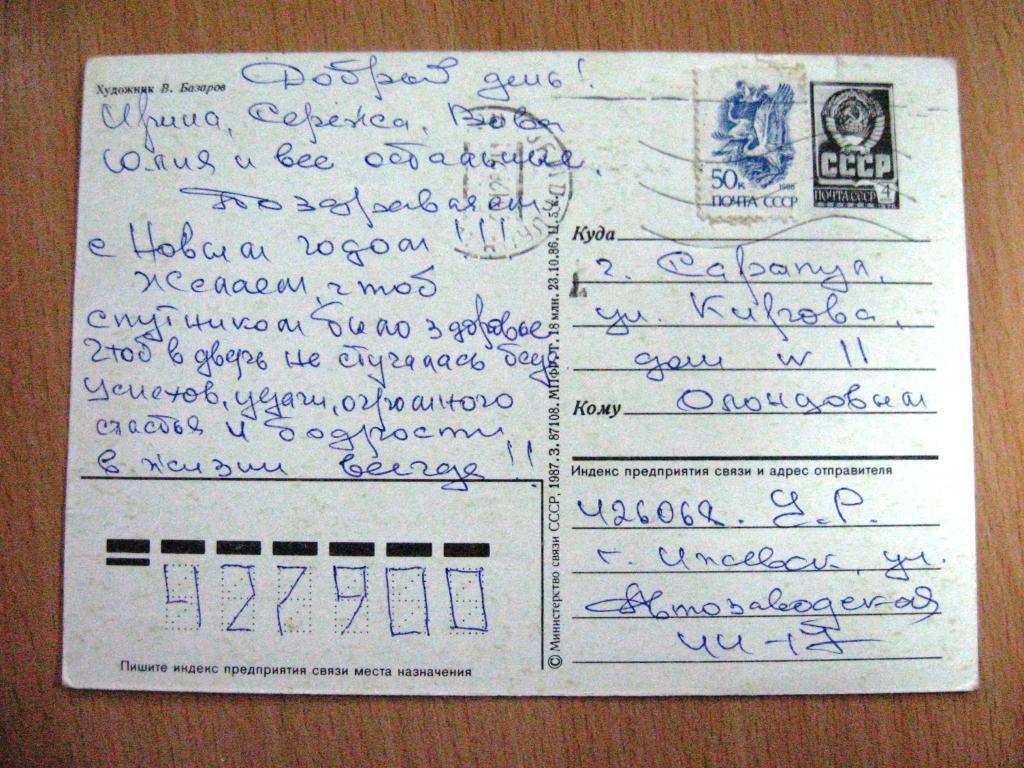 Художник В. Базаров
Добрый день!
Ирина, Сережа, Вова
Юлия и все остальные.
Поздравляем
с Новым годом !!!
Желаем, чтоб
спутником было здоровье
Чтоб в дверь не стучалась беда
Успехов, удачи, огромного
счастья и бодрости
в жизни всегда !!
427900
Пишите индекс предприятия связи места назначения
© Министерство связи СССР, 1987. З. 87108. МПФГ. 18 млн. 23.10.86. Ц. 5 к.
50к
1988
ПОЧТА СССР
СССР
ПОЧТА СССР 4
Куда
г. Сарапул,
ул. Кирова,
дом № 11
Кому
Индекс предприятия связи и адрес отправителя
426068. У.Р.
г. Ижевск, ул.
Автозаводская